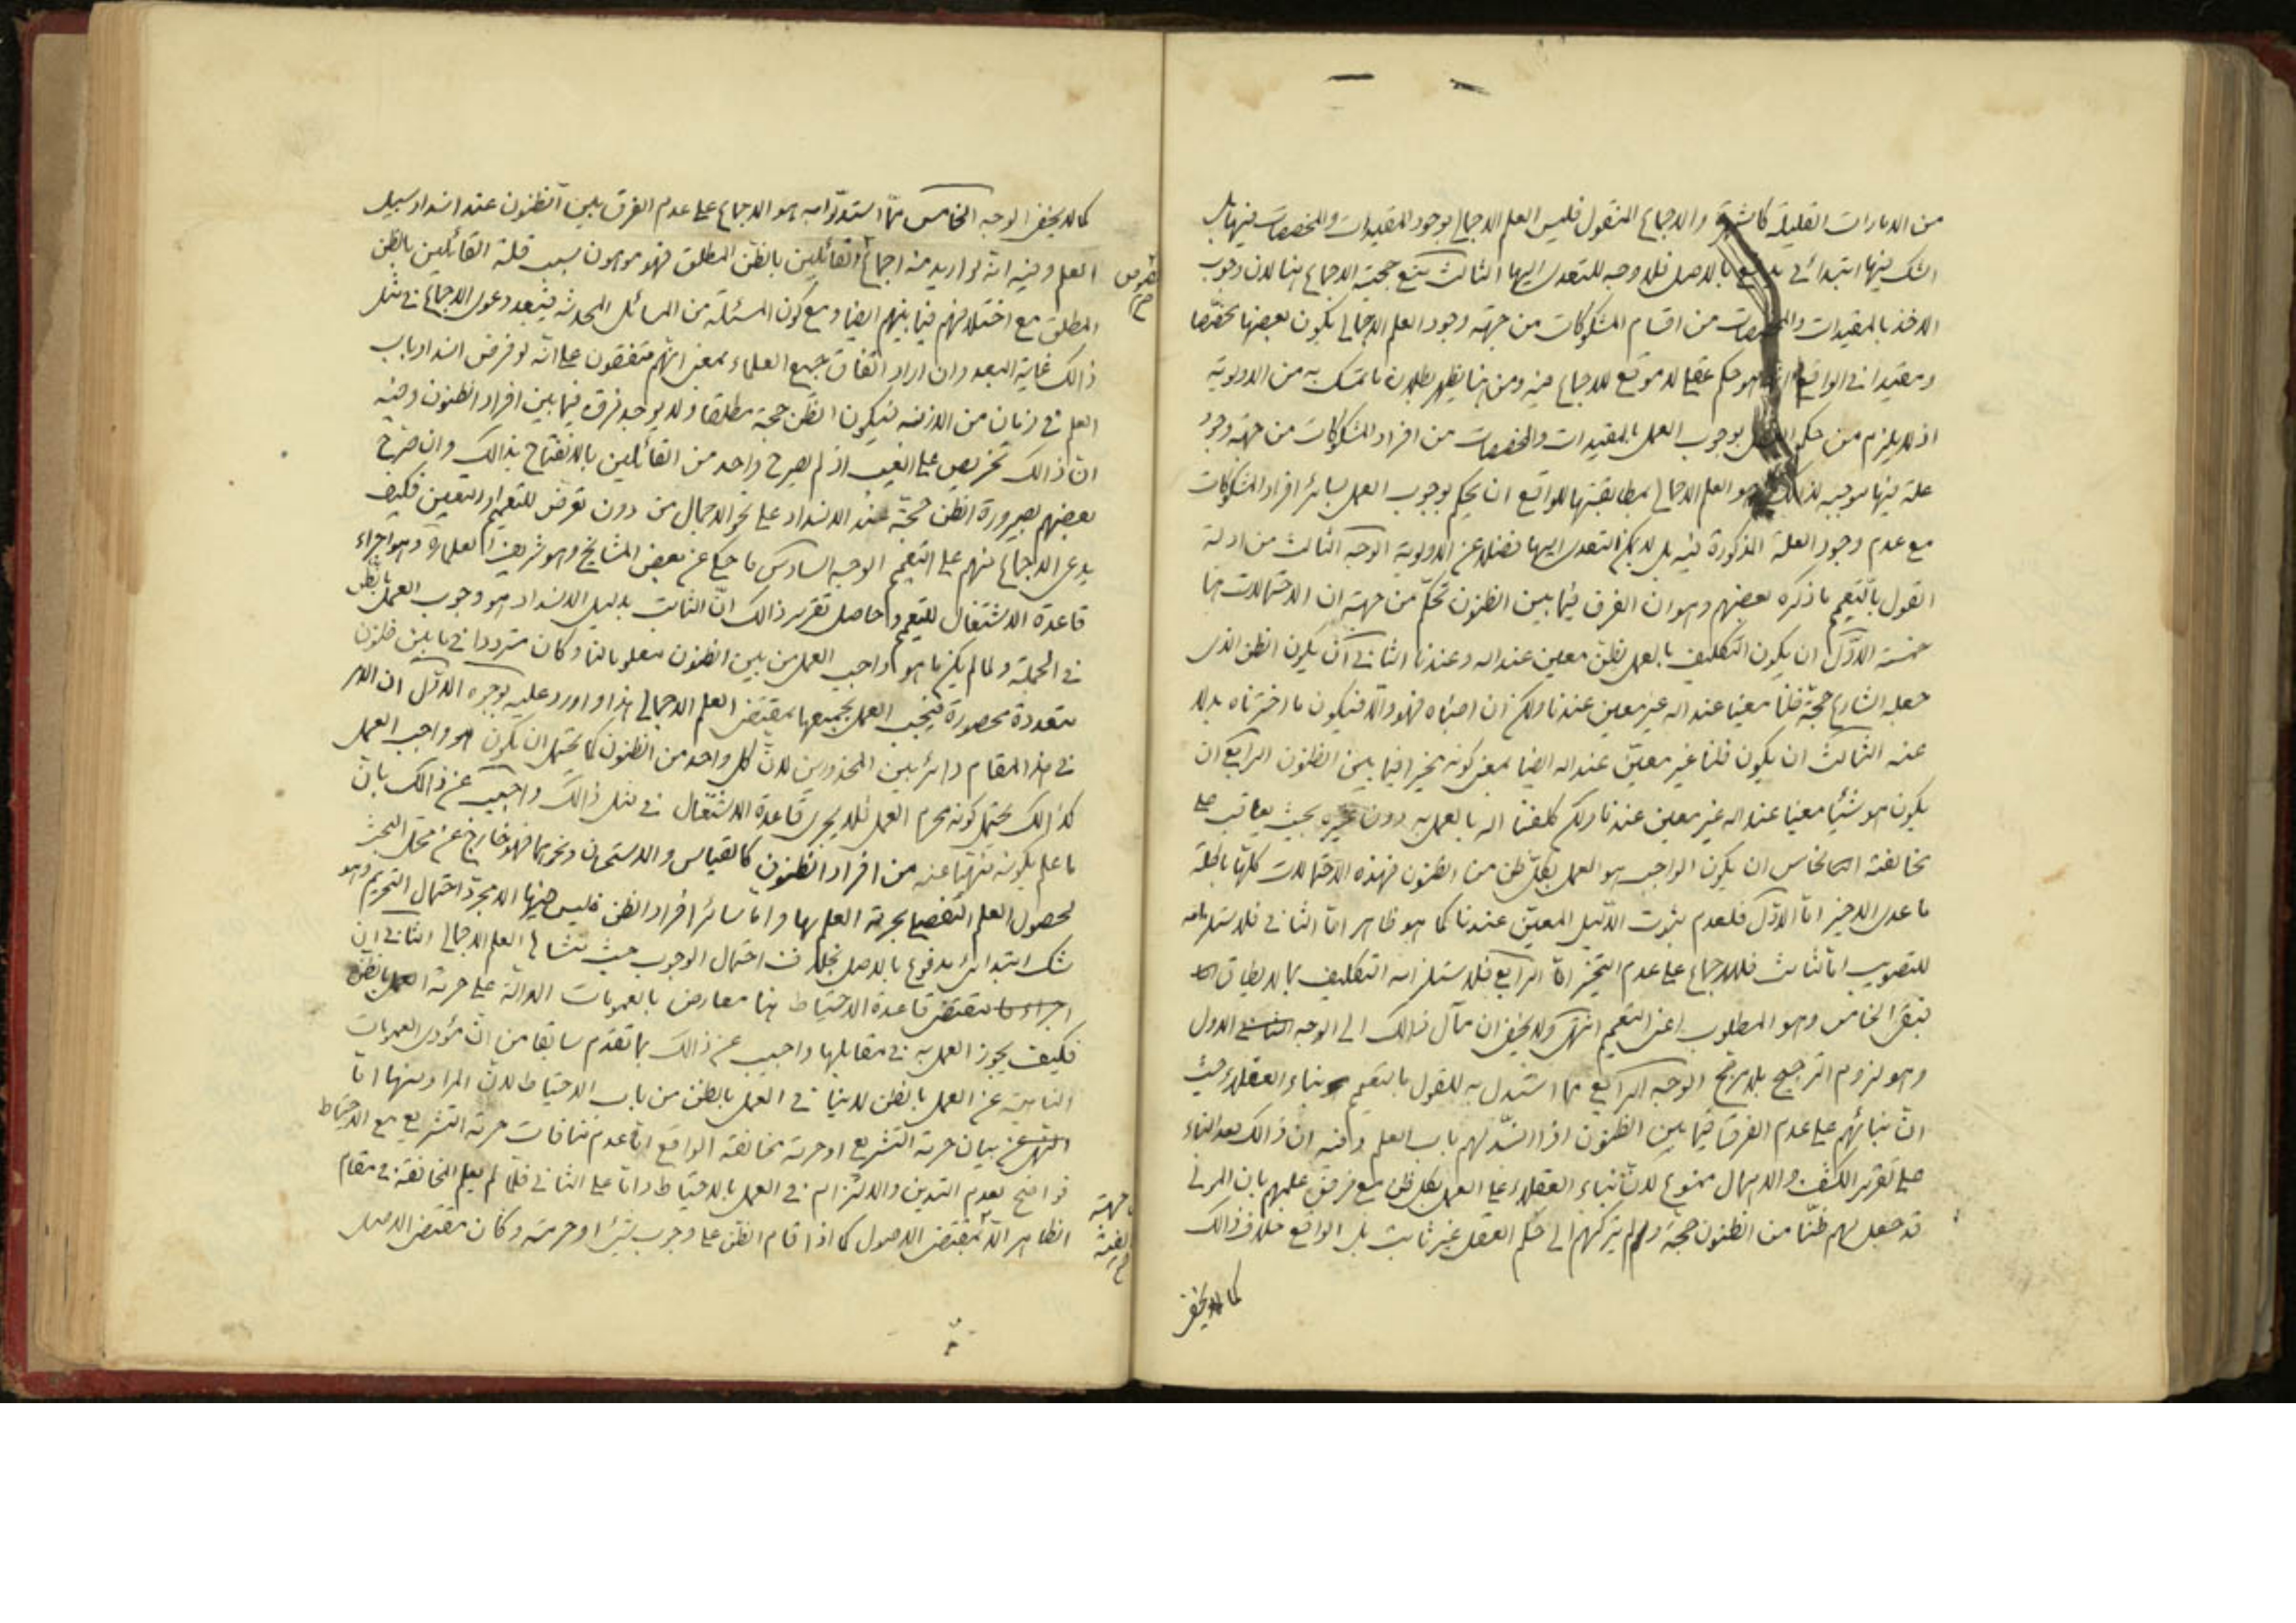 من الامارات القليلة كالشهرة والاجماع المنقول فليس العلم الاجمالي بوجود المقيدات والمخصصات فيها بل
الشك فيها ابتدائي يدفع بالاصل فلا وجه للتعدي اليها الثالث منع حجية الاجماع هنا لان وجوب
الاخذ بالمقيدات والمخصصات من اقسام المشكوكات من جهة وجود العلم الاجمالي بكون بعضها مخصصا
ومقيدا في الواقع انما هو حكم عقلي لا موقع للاجماع فيه ومن هنا يظهر بطلان ما تمسك به من الاولوية
اذ لا يلزم من حكم العقل بوجوب العمل بالمقيدات والمخصصات من افراد المشكوكات من جهة وجود
علة فيها موجبة لذلك وهو العلم الاجمالي بمطابقتها للواقع ان يحكم بوجوب العمل بسائر افراد المشكوكات
مع عدم وجود العلة المذكورة فيه بل لا يمكن التعدي اليها فضلا عن الاولوية الوجه الثالث من ادلة
القول بالتعميم ما ذكره بعضهم وهو ان الفرق فيما بين الظنون تحكم من جهة ان الاحتمالات هنا
خمسة الاول ان يكون التكليف بالعمل بظن معين عند الله وعندنا الثاني ان يكون الظن الذي
جعله الشارع حجة ظنا معينا عند الله غير معين عندنا ولكن ان اصبناه فهو والا فيكون ما اخترناه بدلا
عنه الثالث ان يكون ظنا غير معين عند الله ايضا بمعنى كونه مخيرا فيما بين الظنون الرابع ان
يكون هو شيئا معينا عند الله غير معين عندنا ولكن كلفنا الله بالعمل به دون غيره بحيث يعاقب على
مخالفته الخامس ان يكون الواجب هو العمل بكل ظن من الظنون فهذه الاحتمالات كلها باطلة
ما عدى الاخير اما الاول فلعدم ثبوت الدليل المعين عندنا كما هو ظاهر اما الثاني فلاستلزامه
للتصويب اما الثالث فللاجماع على عدم التخيير اما الرابع فلاستلزامه التكليف بما لا يطاق
فبقى الخامس وهو المطلوب اعنى التعميم انتهى ولا يخفى ان مآل ذلك الى الوجه الاول
وهو لزوم الترجيح بلا مرجح الوجه الرابع مما استدل به للقول بالتعميم بناء العقلاء حيث
ان بنائهم على عدم الفرق فيما بين الظنون اذا انسد لهم باب العلم وفيه ان ذالك بعد البناء
على تقرير الكشف والاهمال ممنوع لان بناء العقلاء على العمل بكل ظن مع فرض علمهم بان المولى
قد جعل لهم ظنا من الظنون حجة ولم يتركهم الى حكم العقل غير ثابت بل الواقع خلاف ذالك
كما لا يخفى
كما لا يخفى الوجه الخامس مما استدلوا به هو الاجماع على عدم الفرق بين الظنون عند انسداد سبيل
العلم وفيه انه لو اريد منه اجماع القائلين بالظن المطلق فهو موهون بسبب قلة القائلين بالظن
المطلق مع اختلافهم فيما بينهم ايضا ومع كون المسئلة من المسائل المحدثة فيبعد دعوى الاجماع في مثل
ذالك غاية البعد وان اراد اتفاق جميع العلماء بمعنى انهم متفقون على انه لو فرض انسداد باب
العلم في زمان من الازمنة فيكون الظن حجة مطلقا ولا يوجد فرق فيما بين افراد الظنون وفيه
ان ذالك تخريص على الغيب اذ لم يصرح واحد من القائلين بالانفتاح بذالك وان صرح
بعضهم بصيرورة الظن حجة عند الانسداد على نحو الاجمال من دون تعرض للتعميم او التعيين فكيف
يدعى الاجماع منهم على التعميم الوجه السادس ما حكى عن بعض المشايخ وهو شريف العلماء ره وهو اجراء
قاعدة الاشتغال للتعميم وحاصل تقرير ذالك ان الثابت بدليل الانسداد هو وجوب العمل بالظن
في الجملة ولما لم يكن ما هو واجب العمل من بين الظنون معلوما لنا وكان مترددا في ما بين ظنون
متعددة محصورة فيجب العمل بجميعها بمقتضى العلم الاجمالي هذا واورد عليه بوجوه الاول ان الامر
في هذا المقام دائر بين المحذورين لان كل واحد من الظنون كما يحتمل ان يكون هو واجب العمل
كذالك يحتمل كونه محرم العمل فلا يجرى قاعدة الاشتغال في مثل ذالك واجيب عن ذالك بان
ما علم بكونه منهيا عنه من افراد الظنون كالقياس والاستحسان ونحوهما فهو خارج عن محل البحث
لحصول العلم التفصيلي بحرمة العمل بها واما سائر افراد الظن فليس فيها الا مجرد احتمال التحريم وهو
شك ابتدائي مدفوع بالاصل بخلاف احتمال الوجوب حيث منشائه العلم الاجمالي الثاني ان
مقتضى قاعدة الاحتياط هنا معارض بالعمومات الدالة على حرمة العمل بالظن
فكيف يجوز العمل به في مقابلها واجيب عن ذالك بما تقدم سابقا من ان مؤدى العمومات
الناهية عن العمل بالظن لا ينافي العمل بالظن من باب الاحتياط لان المراد منها اما
بيان حرمة التشريع او حرمة مخالفة الواقع اما عدم منافات حرمة التشريع مع الاحتياط
فواضح لعدم التدين والالتزام في العمل بالاحتياط واما على الثاني فلما لم يعلم المخالفة في مقام
الظاهر الا بمقتضى الاصول كما اذا قام الظن على وجوب شيء او حرمته وكان مقتضى الاصل